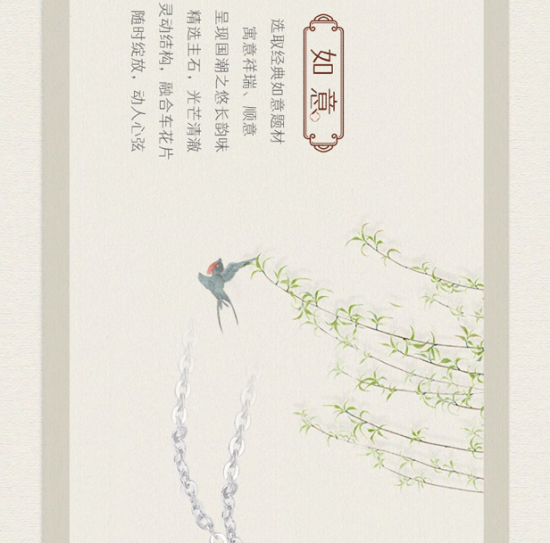 如意
选取经典如意题材
寓意祥瑞、顺意
呈现国潮之悠长韵味
精选主石，光芒清澈
灵动结构，融合车花片
随时绽放，动人心弦